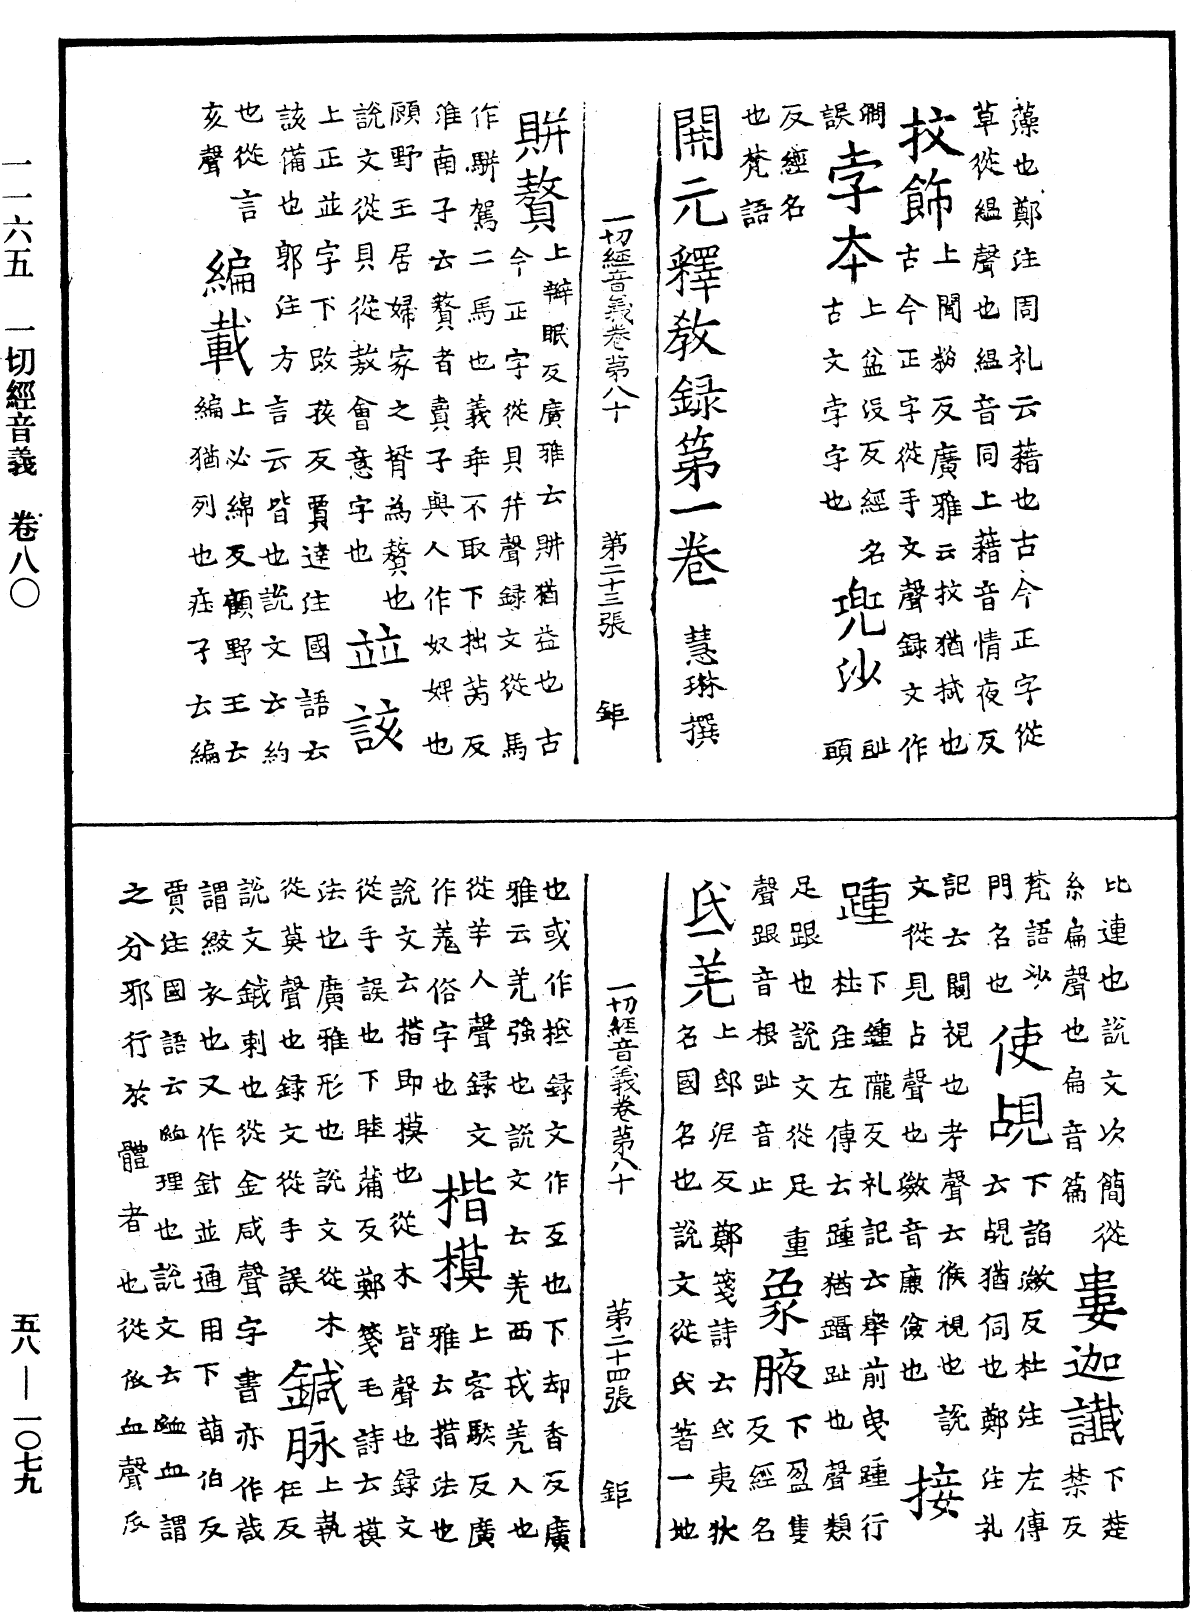 藻也鄭注周礼云藉也古今正字從
草從縕聲也縕音同上藉音情夜反
挍飾上聞粉反廣雅云挍猶拭也
古今正字從手文聲録文作
㨃誤
孛本上盆没反經名
古文孛字也
兜沙上頭
反經名
也梵語
開元釋教録第一卷 慧琳撰
一切經音義卷第八十 第二十三張 鉅
賆贅上辮眠反廣雅云賆猶益也古
今正字從貝并聲録文從馬
作駢駕二馬也義乖不取下拙芮反
淮南子云贅者賣子與人作奴婢也
顾野王居婦家之聟為贅也
說文從貝從敖會意字也
並該
上正並字下改孩反賈逵注國語云
該備也郭注方言云皆也說文云約
也從言
亥聲
編載上必綿反顧野王云
編猶列也莊子云編
比連也說文次簡從
糸扁聲也扁音篇
婁迦讖下楚
禁反
梵語沙
門名也
使覘下諂㵘反杜注左傳
云覘猶伺也鄭注礼
記云闚視也孝聲云候視也說
文從見占聲也㵘音廉儉也
接
踵下鍾隴反礼記云舉前曳踵行
杜注左傳云踵猶躡趾也聲類
足跟也說文從足重
聲跟音根趾音止
象腋下盈隻
反經名
氐羌上邸泥反鄭箋詩云氐夷狄
名國名也說文從氏著一地
一切經音義卷第八十 第二十四張 鉅
也或作㧗録文作互也下却香反廣
雅云羌強也說文云羌西戎羌人也
從羊人聲録文
作羗俗字也
楷模上客駭反廣
雅云楷法也
說文云楷即模也從木皆聲也録文
從手誤也下睦蒲反鄭箋毛詩云模
法也廣雅形也說文從木
從莫聲也録文從手誤
鍼脉上執
任反
說文鍼刺也從金咸聲字書亦作葴
謂綴衣也又作針並通用下萌伯反
賈注國語云䘑理也說文云䘑血謂
之分邪行於體者也從𠂢血聲𠂢
一一六五 一切經音義 卷八〇 五八—一〇七九